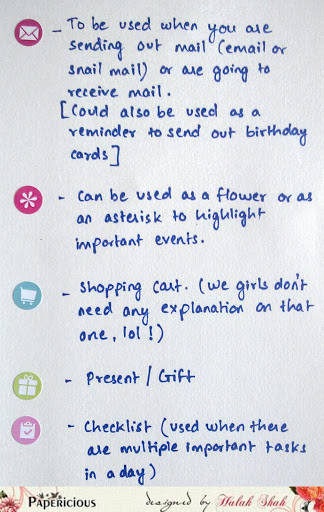 - To be used when you are
sending out mail (email or
snail mail) or are going to
receive mail.
[Could also be used as a
reminder to send out birthday
cards]
- Can be used as a flower or as
an asterisk to highlight
important events.
- Shopping cart. (we girls don't
need any explanation on that
one, lol!)
- Present / Gift
- Checklist (used when there
are multiple important tasks
in a day)
PAPERICIOUS designed by Hulah Shah